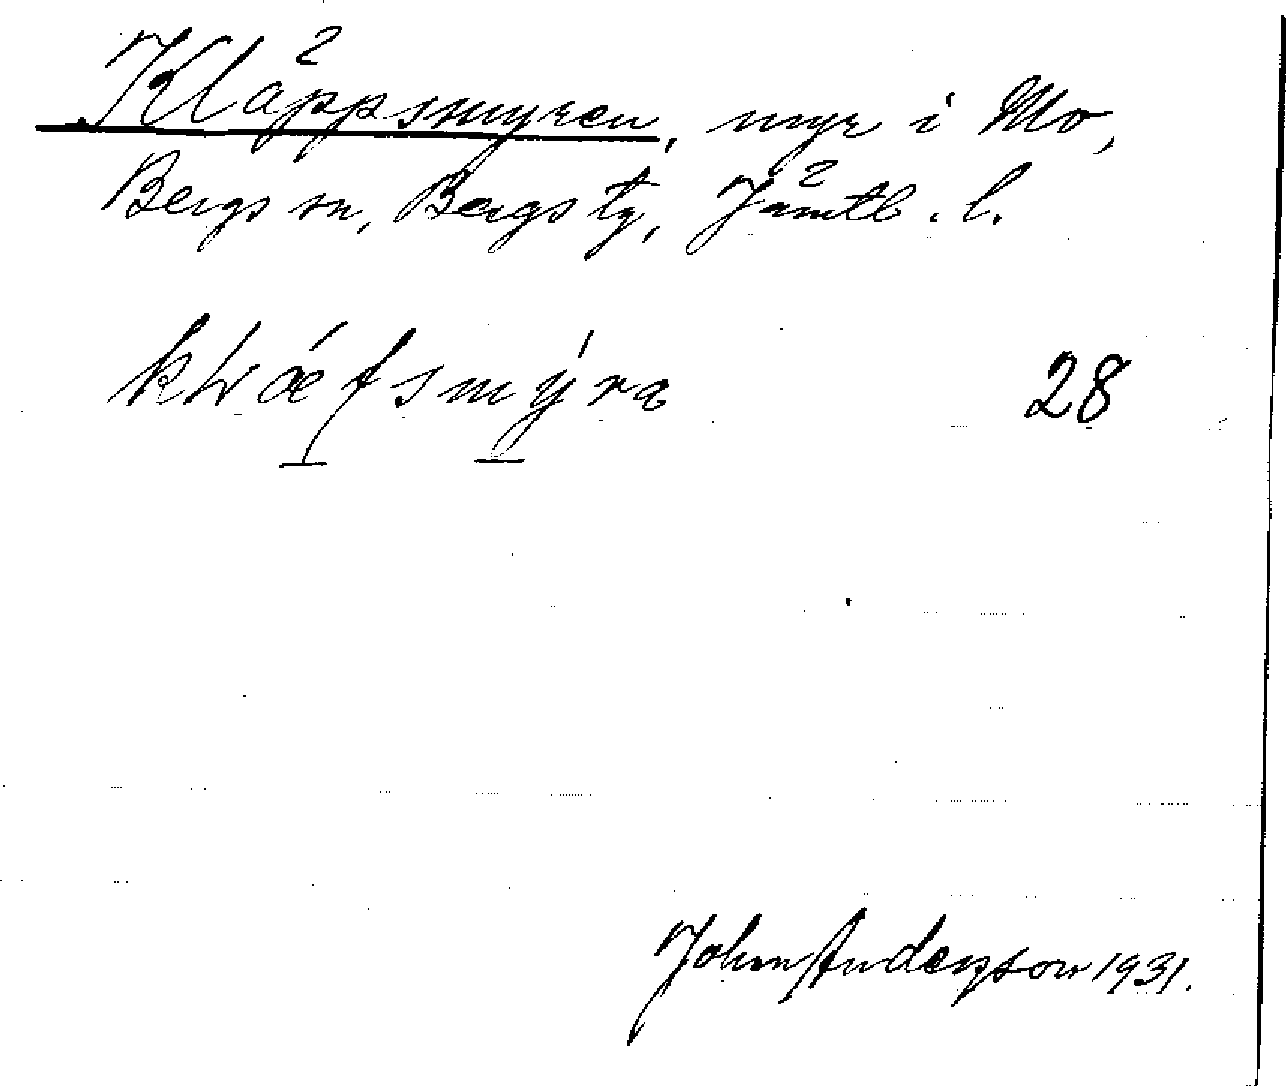 Kläppsmyren, myr i Mo,
Bergs sn, Bergs tg, Jämtl. l.
28
John Andersson 1931.